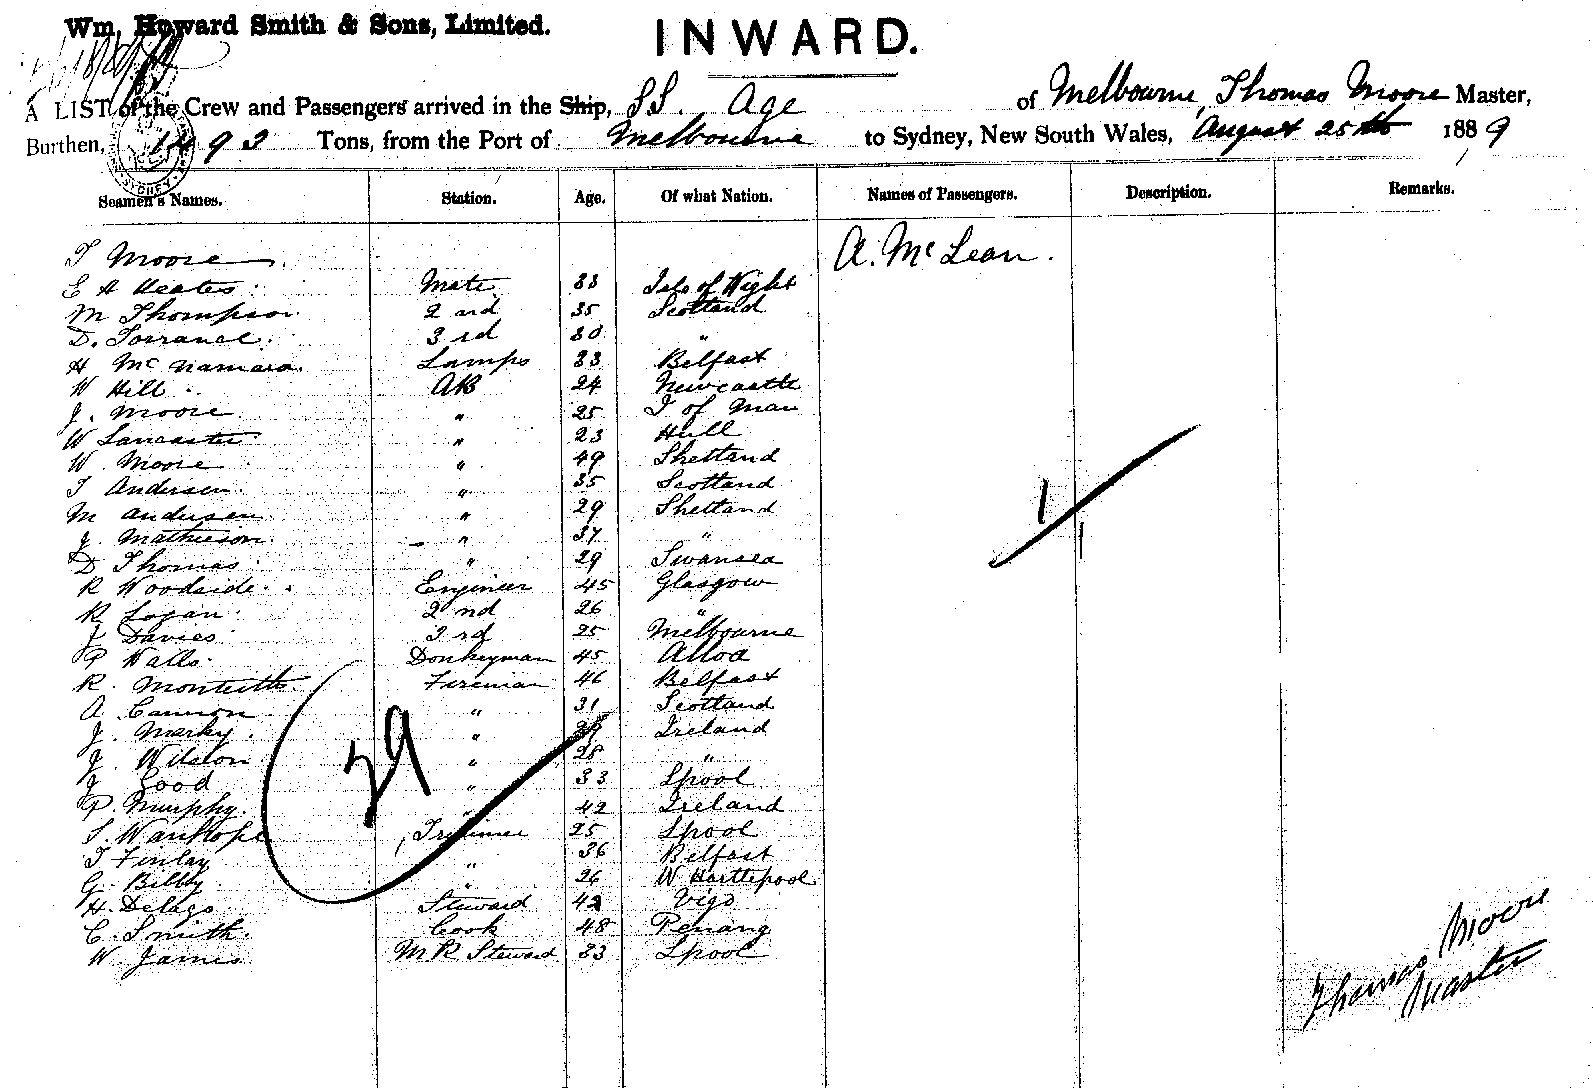 Wm. Howard Smith & Sons, Limited.
INWARD.
A LIST of the Crew and Passengers arrived in the Ship, SS. Age of Melbourne, Thomas Moore Master,
Burthen, 1493 Tons, from the Port of Melbourne to Sydney, New South Wales, August 25th 1889
Seamen's Names. Station. Age. Of what Nation. Names of Passengers. Description. Remarks.
T Moore A. McLean.
E H Keates Mate 33 Isle of Wight
M Thompson 2nd 35 Scotland
D. Torrance 3rd 30 "
H McNamara Lamps 33 Belfast
W Hill AB 24 Newcastle
J. Moore " 25 I of Man
W Lancaster " 23 Hull
W. Moore " 49 Shetland
T Andersen " 35 Scotland
M Andersen " 29 Shetland
J. Mathieson " 37 "
D Thomas " 29 Swansea
R Woodside Engineer 45 Glasgow
R Logan 2nd 26 "
J Davies 3rd 25 Melbourne
P Walls Donkeyman 45 Alloa
R. Monteith Fireman 46 Belfast
A. Cannon " 31 Scotland
J. Merky " Ireland
J. Wilson " 28 "
J Good " 33 Lpool
P. Murphy " 42 Ireland
S. Wanhope Trimmer 25 Lpool
T Finlay " 36 Belfast
G. Bilby " 26 W Hartlepool
H. Delago Steward 42 Vigo
C. Smith Cook 48 Penang
W. James M R Steward 33 Lpool
29
1
Thomas Moore
Master